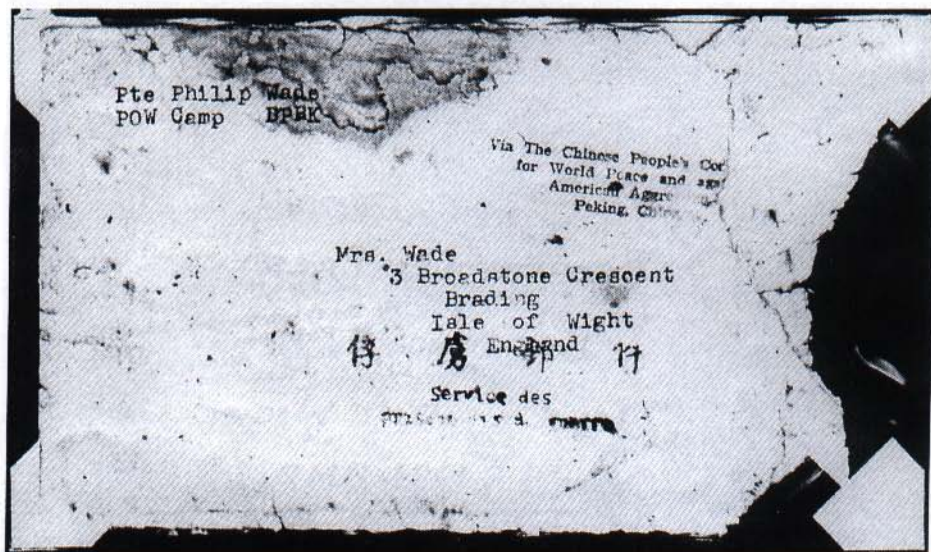 Pte Philip Wade
POW Camp DPRK
Via The Chinese People's
for World Peace and
American
Peking,
Mrs. Wade
3 Broadstone Crescent
Brading
Isle of Wight
England
俘 虜 郵 件
Service des